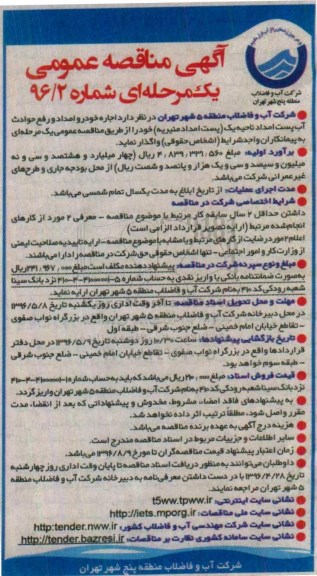 آگهی مناقصه عمومی
یک مرحله‌ای شماره ۹۶/۲
شرکت آب و فاضلاب
منطقه پنج شهر تهران
شرکت آب و فاضلاب منطقه ۵ شهر تهران در نظر دارد اجاره خودرو امداد و رفع حوادث
آب پست امداد ناحیه یک (پست امداد منیریه) خود را از طریق مناقصه عمومی یک مرحله‌ای
به پیمانکاران واجد شرایط (اشخاص حقوقی) واگذار نماید.
برآورد اولیه: مبلغ ۴٫۸۳۹٫۳۳۱٫۵۶۰ ریال (چهار میلیارد و هشتصد و سی و نه
میلیون و سیصد و سی و یک هزار و پانصد و شصت ریال) از محل بودجه جاری و طرح‌های
غیرعمرانی شرکت می‌باشد.
مدت اجرای عملیات: از تاریخ ابلاغ به مدت یکسال تمام شمسی می‌باشد.
شرایط اختصاصی شرکت در مناقصه
داشتن حداقل ۲ سال سابقه کار مرتبط با موضوع مناقصه - معرفی ۲ مورد از کارهای
انجام شده مرتبط (ارایه تصویر قرارداد الزامی است)
اعلام ۲ مورد رضایت از کارهای مرتبط و یا مشابه با موضوع مناقصه - ارایه تاییدیه صلاحیت ایمنی
از وزارت کار و امور اجتماعی - تنها اشخاص حقوقی حق شرکت در مناقصه را دارا می‌باشند.
مبلغ و نوع سپرده شرکت در مناقصه: پیشنهاد دهنده مکلف است مبلغ ۲۴۱٫۹۶۷٫۰۰۰ ریال
به صورت ضمانتنامه بانکی یا واریز نقدی به حساب شماره نزد بانک سینا
شعبه رودکی کد ۲۱۰ به نام شرکت آب و فاضلاب منطقه ۵ شهر تهران ارایه نماید.
مهلت و محل تحویل اسناد مناقصه: تا آخر وقت اداری روز یکشنبه تاریخ ۱۳۹۶/۵/۸
در محل دبیرخانه شرکت آب و فاضلاب منطقه ۵ شهر تهران واقع در بزرگراه نواب صفوی
- تقاطع خیابان امام خمینی - ضلع جنوب شرقی - طبقه اول
تاریخ بازگشایی پیشنهادها: ساعت ۱۰/۳۰ روز دوشنبه تاریخ ۱۳۹۶/۵/۹ در محل دفتر
قراردادها واقع در بزرگراه نواب صفوی - تقاطع خیابان امام خمینی - ضلع جنوب شرقی
- طبقه سوم خواهد بود.
قیمت فروش اسناد: مبلغ ریال می‌باشد که باید به حساب شماره
نزد بانک سینا شعبه رودکی کد ۲۱۰ به نام شرکت آب و فاضلاب منطقه ۵ شهر تهران واریز گردد.
به پیشنهادهای فاقد امضاء، مشروط، مخدوش و پیشنهاداتی که بعد از انقضاء مدت
مقرر واصل شود، مطلقاً ترتیب اثر داده نخواهد شد.
هزینه درج آگهی به عهده برنده مناقصه می‌باشد.
سایر اطلاعات و جزییات مربوط در اسناد مناقصه مندرج است.
زمان اعتبار پیشنهاد قیمت مناقصه‌گران تا مورخ ۱۳۹۶/۸/۹ می‌باشد.
داوطلبان می‌توانند به منظور دریافت اسناد مناقصه تا پایان وقت اداری روز چهارشنبه
تاریخ ۱۳۹۶/۴/۲۸ با در دست داشتن معرفی‌نامه به دبیرخانه شرکت آب و فاضلاب منطقه
۵ شهر تهران مراجعه نمایند.
نشانی سایت اینترنتی: t5ww.tpww.ir
نشانی سایت ملی مناقصات: http://iets.mporg.ir
نشانی سایت شرکت مهندسی آب و فاضلاب کشور: http:tender.nww.ir
نشانی سایت سامانه کشوری نظارت بر مناقصات: http://tender.bazresi.ir
شرکت آب و فاضلاب منطقه پنج شهر تهران